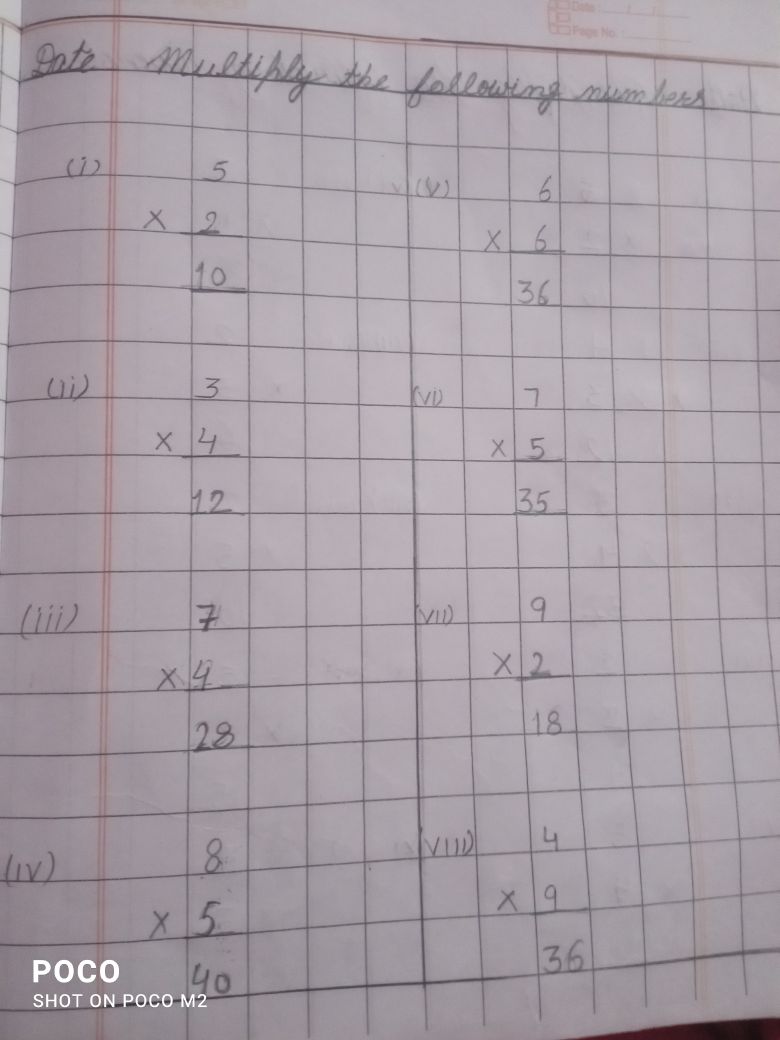 Date
Page No.
Date Multiply the following numbers
(i) 5
x 2
10
(ii) 3
x 4
12
(iii) 7
x 4
28
(iv) 8
x 5
40
(v) 6
x 6
36
(vi) 7
x 5
35
(vii) 9
x 2
18
(viii) 4
x 9
36
POCO
SHOT ON POCO M2